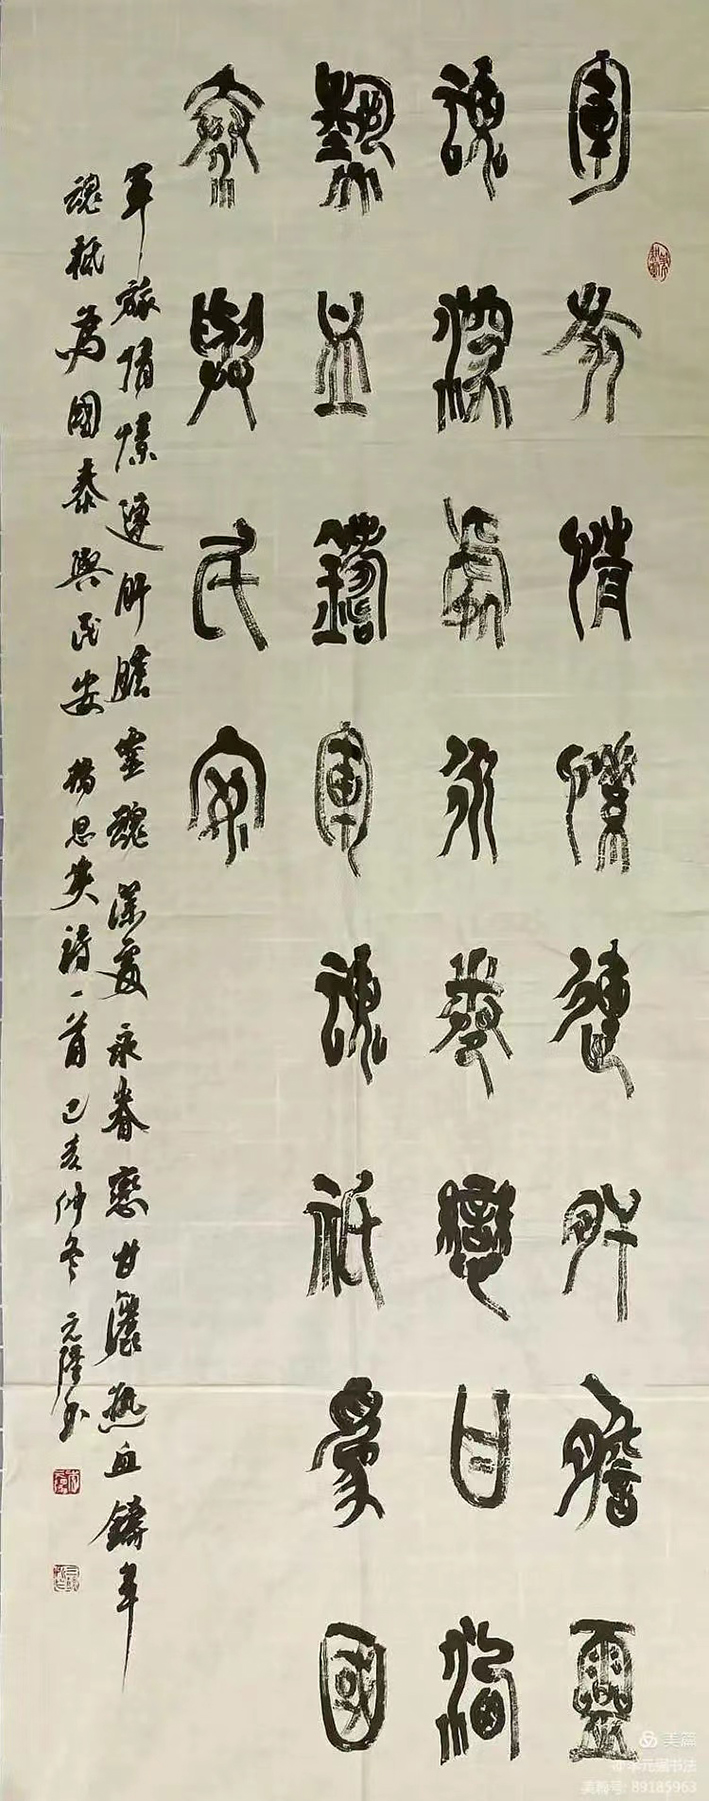 軍旅情愫連肝膽靈
魂深處永眷戀甘灑
熱血鑄軍魂祇為國
泰與民安
軍旅情愫連肝膽靈魂深處永眷戀甘灑熱血鑄軍
魂祇為國泰與民安楊思英詩一首己亥仲冬元隆書
美篇
李元隆书法
美篇号: 89185963